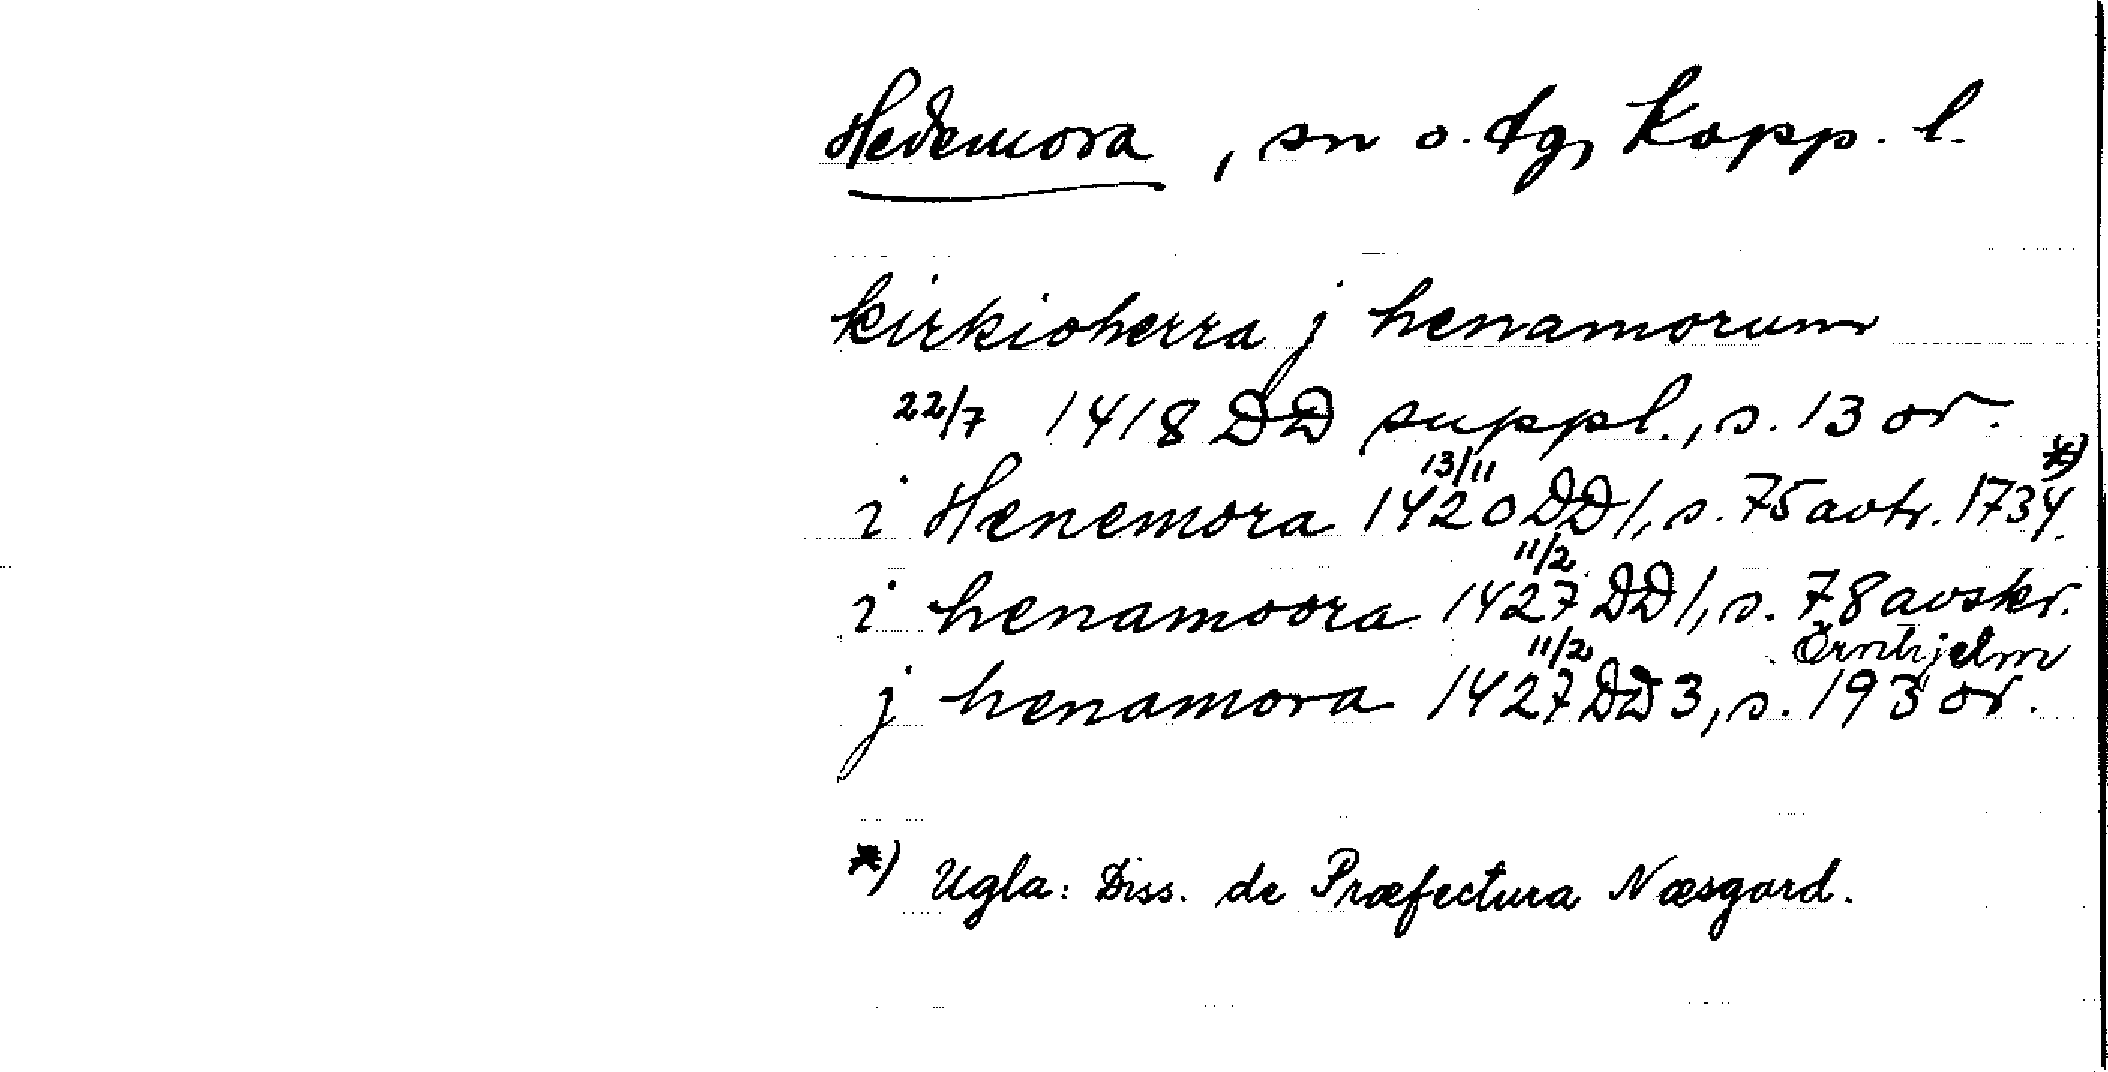 Hedemora, sn o. tg, Kopp. l.
kirkioherra j henamorum
22/7 1418 DD suppl., s. 13 or.
i Henemora 13/11 1420 DD 1, s. 75 avtr. 1734 *)
i henamoora 11/2 1427 DD 1, s. 78 avskr. Örnhjelm
j henamora 11/2 1427 DD 3, s. 193 or.
*) Ugla: Diss. de Præfectura Næsgard.